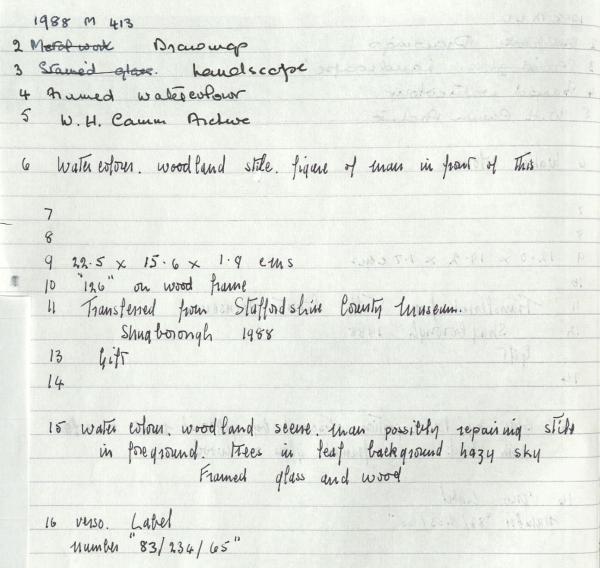 1988 M 413
2 Metalwork Drawings
3 Stained glass. Landscape
4 Framed watercolour
5 W.H. Camm Archive
6 Watercolour. woodland stile. figure of man in front of this
7
8
9 22.5 x 15.6 x 1.9 cms
10 "126" on wood frame
11 Transferred from Staffordshire County Museum.
Shugborough 1988
13 Gift
14
15 water colour. woodland scene. man possibly repairing stile
in foreground. Trees in leaf background hazy sky
Framed glass and wood
16 verso. Label
number "83/234/65"